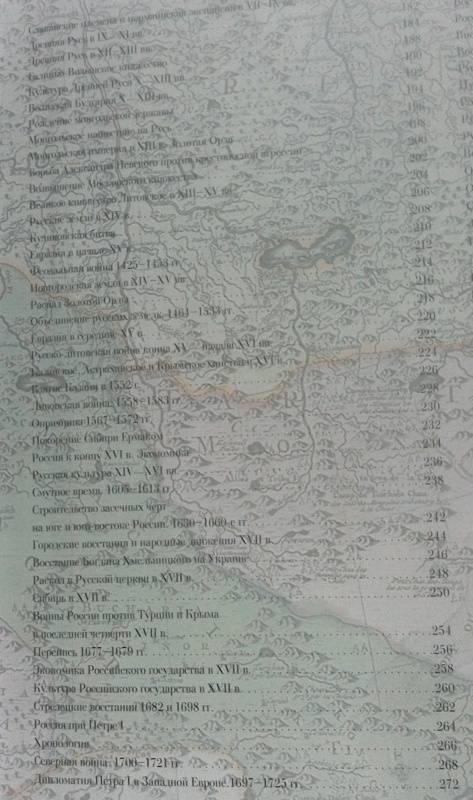 Славянские племена и норманнская экспансия в VII–IX вв. 182
Древняя Русь в IX–XI вв. 184
Древняя Русь в XII–XIII вв. 188
Галицко-Волынское княжество 190
Культура Древней Руси X–XIII вв. 192
Волжская Булгария X–XIII вв. 194
Рождение монгольской державы 196
Монгольское нашествие на Русь 198
Монгольская империя в XIII в. Золотая Орда 200
Борьба Александра Невского против крестоносной агрессии 202
Возвышение Московского княжества 204
Великое княжество Литовское в XIII–XV вв. 206
Русские земли в XIV в. 208
Куликовская битва 210
Евразия в начале XV в. 212
Феодальная война 1425–1453 гг. 214
Новгородская земля в XIV–XV вв. 216
Распад Золотой Орды 218
Объединение русских земель. 1461–1533 гг. 220
Евразия в середине XV в. 222
Русско-литовские войны конца XV – начала XVI вв. 224
Казанское, Астраханское и Крымское ханства в XVI в. 226
Взятие Казани в 1552 г. 228
Ливонская война. 1558–1583 гг. 230
Опричнина 1567–1572 гг. 232
Покорение Сибири Ермаком 234
Россия к концу XVI в. Экономика 236
Русская культура XIV–XVI вв. 238
Смутное время. 1605–1613 гг.
Строительство засечных черт
на юге и юго-востоке России. 1630–1660-е гг. 242
Городские восстания и народные движения XVII в. 244
Восстание Богдана Хмельницкого на Украине 246
Раскол в Русской церкви в XVII в. 248
Сибирь в XVII в. 250
Войны России против Турции и Крыма
в последней четверти XVII в. 254
Перепись 1677–1679 гг. 256
Экономика Российского государства в XVII в. 258
Культура Российского государства в XVII в. 260
Стрелецкие восстания 1682 и 1698 гг. 262
Россия при Петре I 264
Хронология 266
Северная война. 1700–1721 гг. 268
Дипломатия Петра I в Западной Европе. 1697–1725 гг. 272